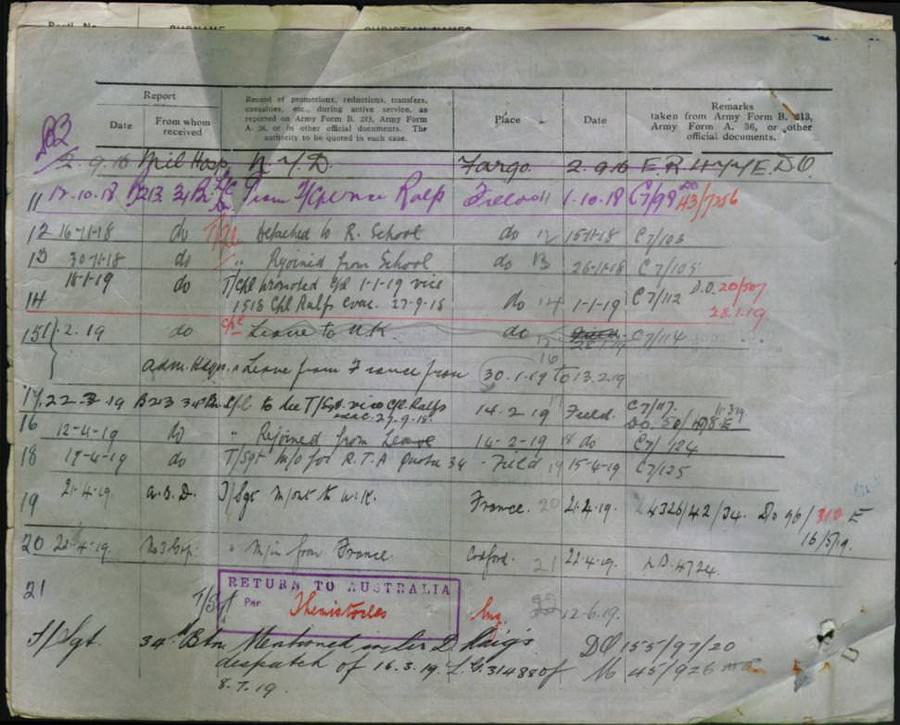 SURNAME CHRISTIAN NAMES
Report
Date
From whom received
Record of promotions, reductions, transfers, casualties, etc., during active service, as reported on Army Form B. 213, Army Form A. 36, or in other official documents. The authority to be quoted in each case.
Place
Date
Remarks
taken from Army Form B. 213, Army Form A. 36, or other official documents.
2.9.16 Mil Hosp N.Y.D. Fargo 2.9.16
11 12.10.18 B213 1.10.18 C7/98 A3/7256
12 16-11-18 do Detached to R. School do 12 15-11-18 C7/103
13 30-11-18 do " Rejoined from School do 13 26-11-18 C7/105
14 18-1-19 do T/Cpl promoted Cpl 1-1-19 vice
1518 Cpl Ralfs evac. 27-9-18 do 14 1-1-19 C7/112 D.O. 20/507
28.1.19
15 2.19 do Cpl Leave to U.K. do C7/114
16
Adm. Hdqn. " Leave from France from 30.1.19 to 13.2.19
17 22 3 19 B213 34 Bn Cpl to be T/Sgt vice Cpl Ralfs 14.2.19 Field C7/117
evac. 27-9-18.
16 12-4-19 do " Rejoined from Leave 14-2-19 18 do C7/124
18 19-4-19 do T/Sgt m/o for R.T.A Quota 34 - Field 19 15-4-19 C7/125
19 21-4-19. a.s.D. T/Sgt m/out to U.K. France. 20 21.4.19. 4326/42/34. Do 96/310 E
16/5/19.
20 22-4-19. No 3 Grp. " M/in from France. Codford. 21 22.4.19. 4724.
21 RETURN TO AUSTRALIA
T/Sgt Per Themistocles Eng 22 12-6-19.
T/Sgt. 34th Btn Mentioned in Sir D Haig's DO 155/97/20
despatch of 16.3.19. L.G. 31448 of M 45/926
8.7.19.